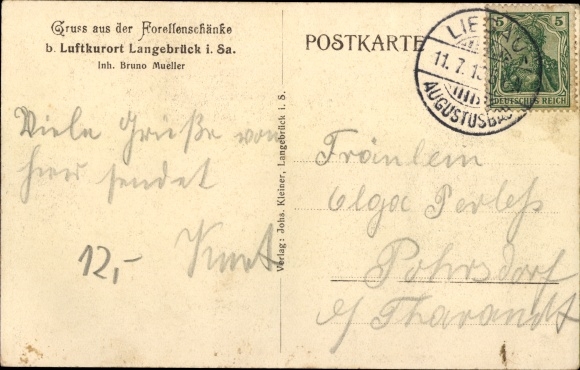 Gruss aus der Forellenschänke
b. Luftkurort Langebrück i. Sa.
Inh. Bruno Mueller
Viele Grüße von
hier sendet
Kurt
12,-
Verlag: Johs. Kleiner, Langebrück i. S.
POSTKARTE
LIEGAU
11.7.13
AUGUSTUSBAD
5 5
DEUTSCHES REICH
Fräulein
Olga Perleß
Pohrsdorf
b/ Tharandt